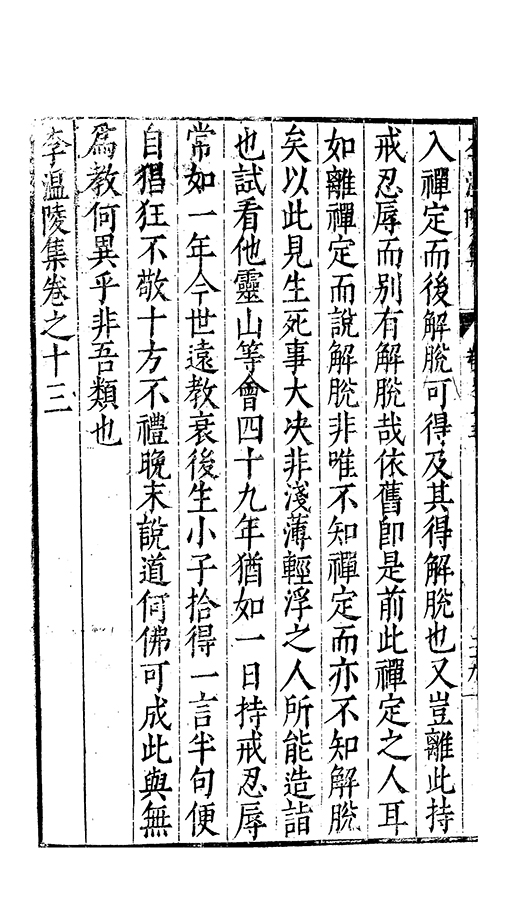 入禪定而後解脫可得及其得解脫也又豈離此持
戒忍辱而別有解脫哉依舊卽是前此禪定之人耳
如離禪定而說解脫非唯不知禪定而亦不知解脫
矣以此見生死事大决非淺薄輕浮之人所能造詣
也試看他靈山等會四十九年猶如一日持戒忍辱
常如一年今世遠教衰後生小子拾得一言半句便
自猖狂不敬十方不禮晚末說道何佛可成此與無
爲教何異乎非吾類也
李溫陵集卷之十三